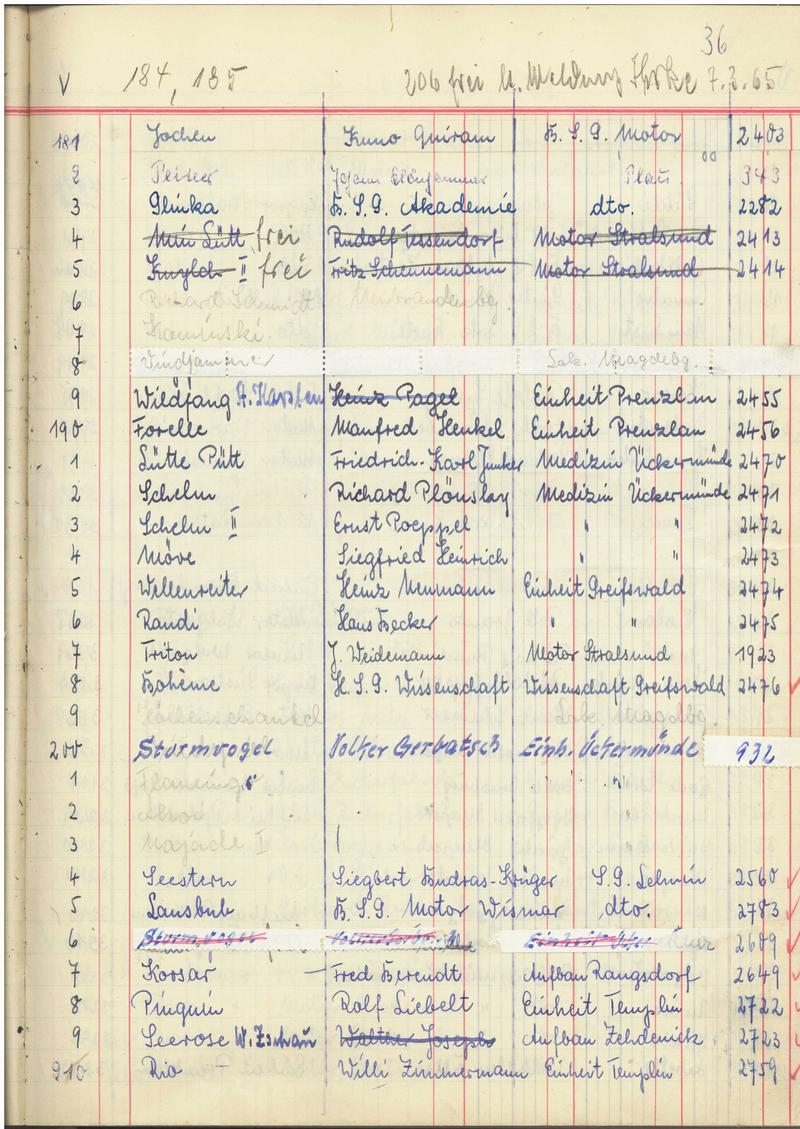 36
V 184, 185 206 frei lt. Meldung 7.3.65
181 Jochen Kuno Guiram B. S. G. Motor 2403
2 Peiner Plau 343
3 Glinka B. S. G. Akademie dto. 2282
4 Min Lütt frei Rudolf Tessendorf Motor Stralsund 2413
5 II frei Fritz Schünemann Motor Stralsund 2414
6 Richard Schmidt Neubrandenbg.
7 Kaminski.
8 Windjammer Lok. Magdebg.
9 Wildfang H. Karsten Heinz Pagel Einheit Prenzlau 2455
190 Forelle Manfred Henkel Einheit Prenzlau 2456
1 Lütte Pütt Friedrich-Karl Junker Medizin Ückermünde 2470
2 Schelm Richard Medizin Ückermünde 2471
3 Schelm II Ernst Poeppel " " 2472
4 Möve Siegfried Heinrich " " 2473
5 Wellenreiter Heinz Neumann Einheit Greifswald 2474
6 Randi Hans Becker " " 2475
7 Triton J. Weidemann Motor Stralsund 1923
8 Bohème H. S. G. Wissenschaft Wissenschaft Greifswald 2476
9 Lok. Magdbg.
200 Sturmvogel Volker Gerbatsch Einh. Ückermünde 932
1 Flamingo "
2 "
3 Najade I "
4 Seestern Siegbert Andras-Krüger S. G. Lehnin 2560
5 Lausbub B. S. G. Motor Wismar dto. 2783
6 Sturmvogel Einheit 2609
7 Korsar – Fred Berendt Aufbau Rangsdorf 2649
8 Pinguin Rolf Liebelt Einheit Templin 2722
9 Seerose W. Zschau Walther Joseph Aufbau Zehdenick 2723
210 Rio Willi Zimmermann Einheit Templin 2759